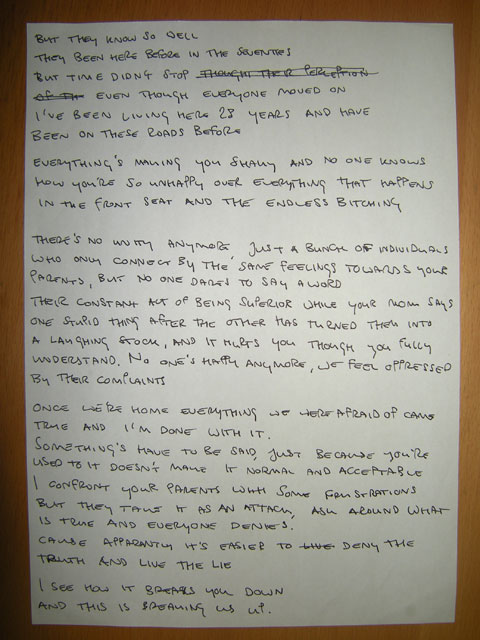 BUT THEY KNOW SO WELL
THEY BEEN HERE BEFORE IN THE SEVENTIES
BUT TIME DIDN'T STOP THOUGHT THEIR PERCEPTION
OF TH EVEN THOUGH EVERYONE MOVED ON
I'VE BEEN LIVING HERE 23 YEARS AND HAVE
BEEN ON THESE ROADS BEFORE
EVERYTHING'S MAKING YOU SHAKY AND NO ONE KNOWS
HOW YOU'RE SO UNHAPPY OVER EVERYTHING THAT HAPPENS
IN THE FRONT SEAT AND THE ENDLESS BITCHING
THERE'S NO UNITY ANYMORE JUST A BUNCH OF INDIVIDUALS
WHO ONLY CONNECT BY THE SAME FEELINGS TOWARDS YOUR
PARENTS, BUT NO ONE DARES TO SAY A WORD
THEIR CONSTANT ACT OF BEING SUPERIOR WHILE YOUR MOM SAYS
ONE STUPID THING AFTER THE OTHER HAS TURNED THEM INTO
A LAUGHING STOCK, AND IT HURTS YOU THOUGH YOU FULLY
UNDERSTAND. NO ONE'S HAPPY ANYMORE, WE FEEL OPPRESSED
BY THEIR COMPLAINTS
ONCE WE'RE HOME EVERYTHING WE WERE AFRAID OF CAME
TRUE AND I'M DONE WITH IT.
SOMETHING'S HAVE TO BE SAID, JUST BECAUSE YOU'RE
USED TO IT DOESN'T MAKE IT NORMAL AND ACCEPTABLE
I CONFRONT YOUR PARENTS WITH SOME FRUSTRATIONS
BUT THEY TAKE IT AS AN ATTACK, ASK AROUND WHAT
IS TRUE AND EVERYONE DENIES.
CAUSE APPARANTLY IT'S EASIER TO LIVE DENY THE
TRUTH AND LIVE THE LIE
I SEE HOW IT BREAKS YOU DOWN
AND THIS IS BREAKING US UP.